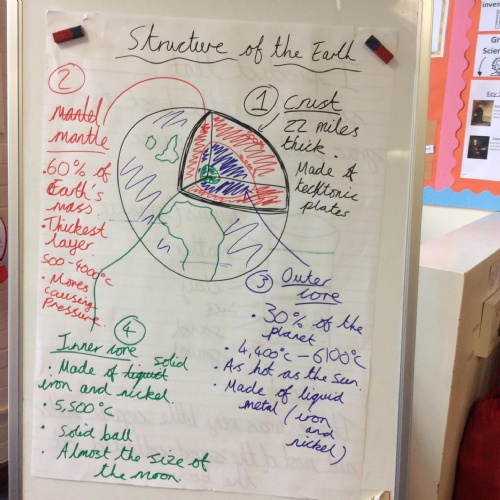 Structure of the Earth
① Crust
22 miles
thick.
Made of
tecktonic
plates
②
mantel
mantle
. 60% of
Earth's
mass
. Thickest
layer
500-4000°c
. Moves
causing
pressure.
③ Outer
core
. 30% of the
planet
. 4,400°c - 6100°c
. As hot as the sun.
. Made of liquid
metal (iron
and
nickel)
④
Inner core
. Made of liquid solid
iron and nickel.
. 5,500°c
. Solid ball
. Almost the size of
the moon.
inves
Gr
Scien
Key